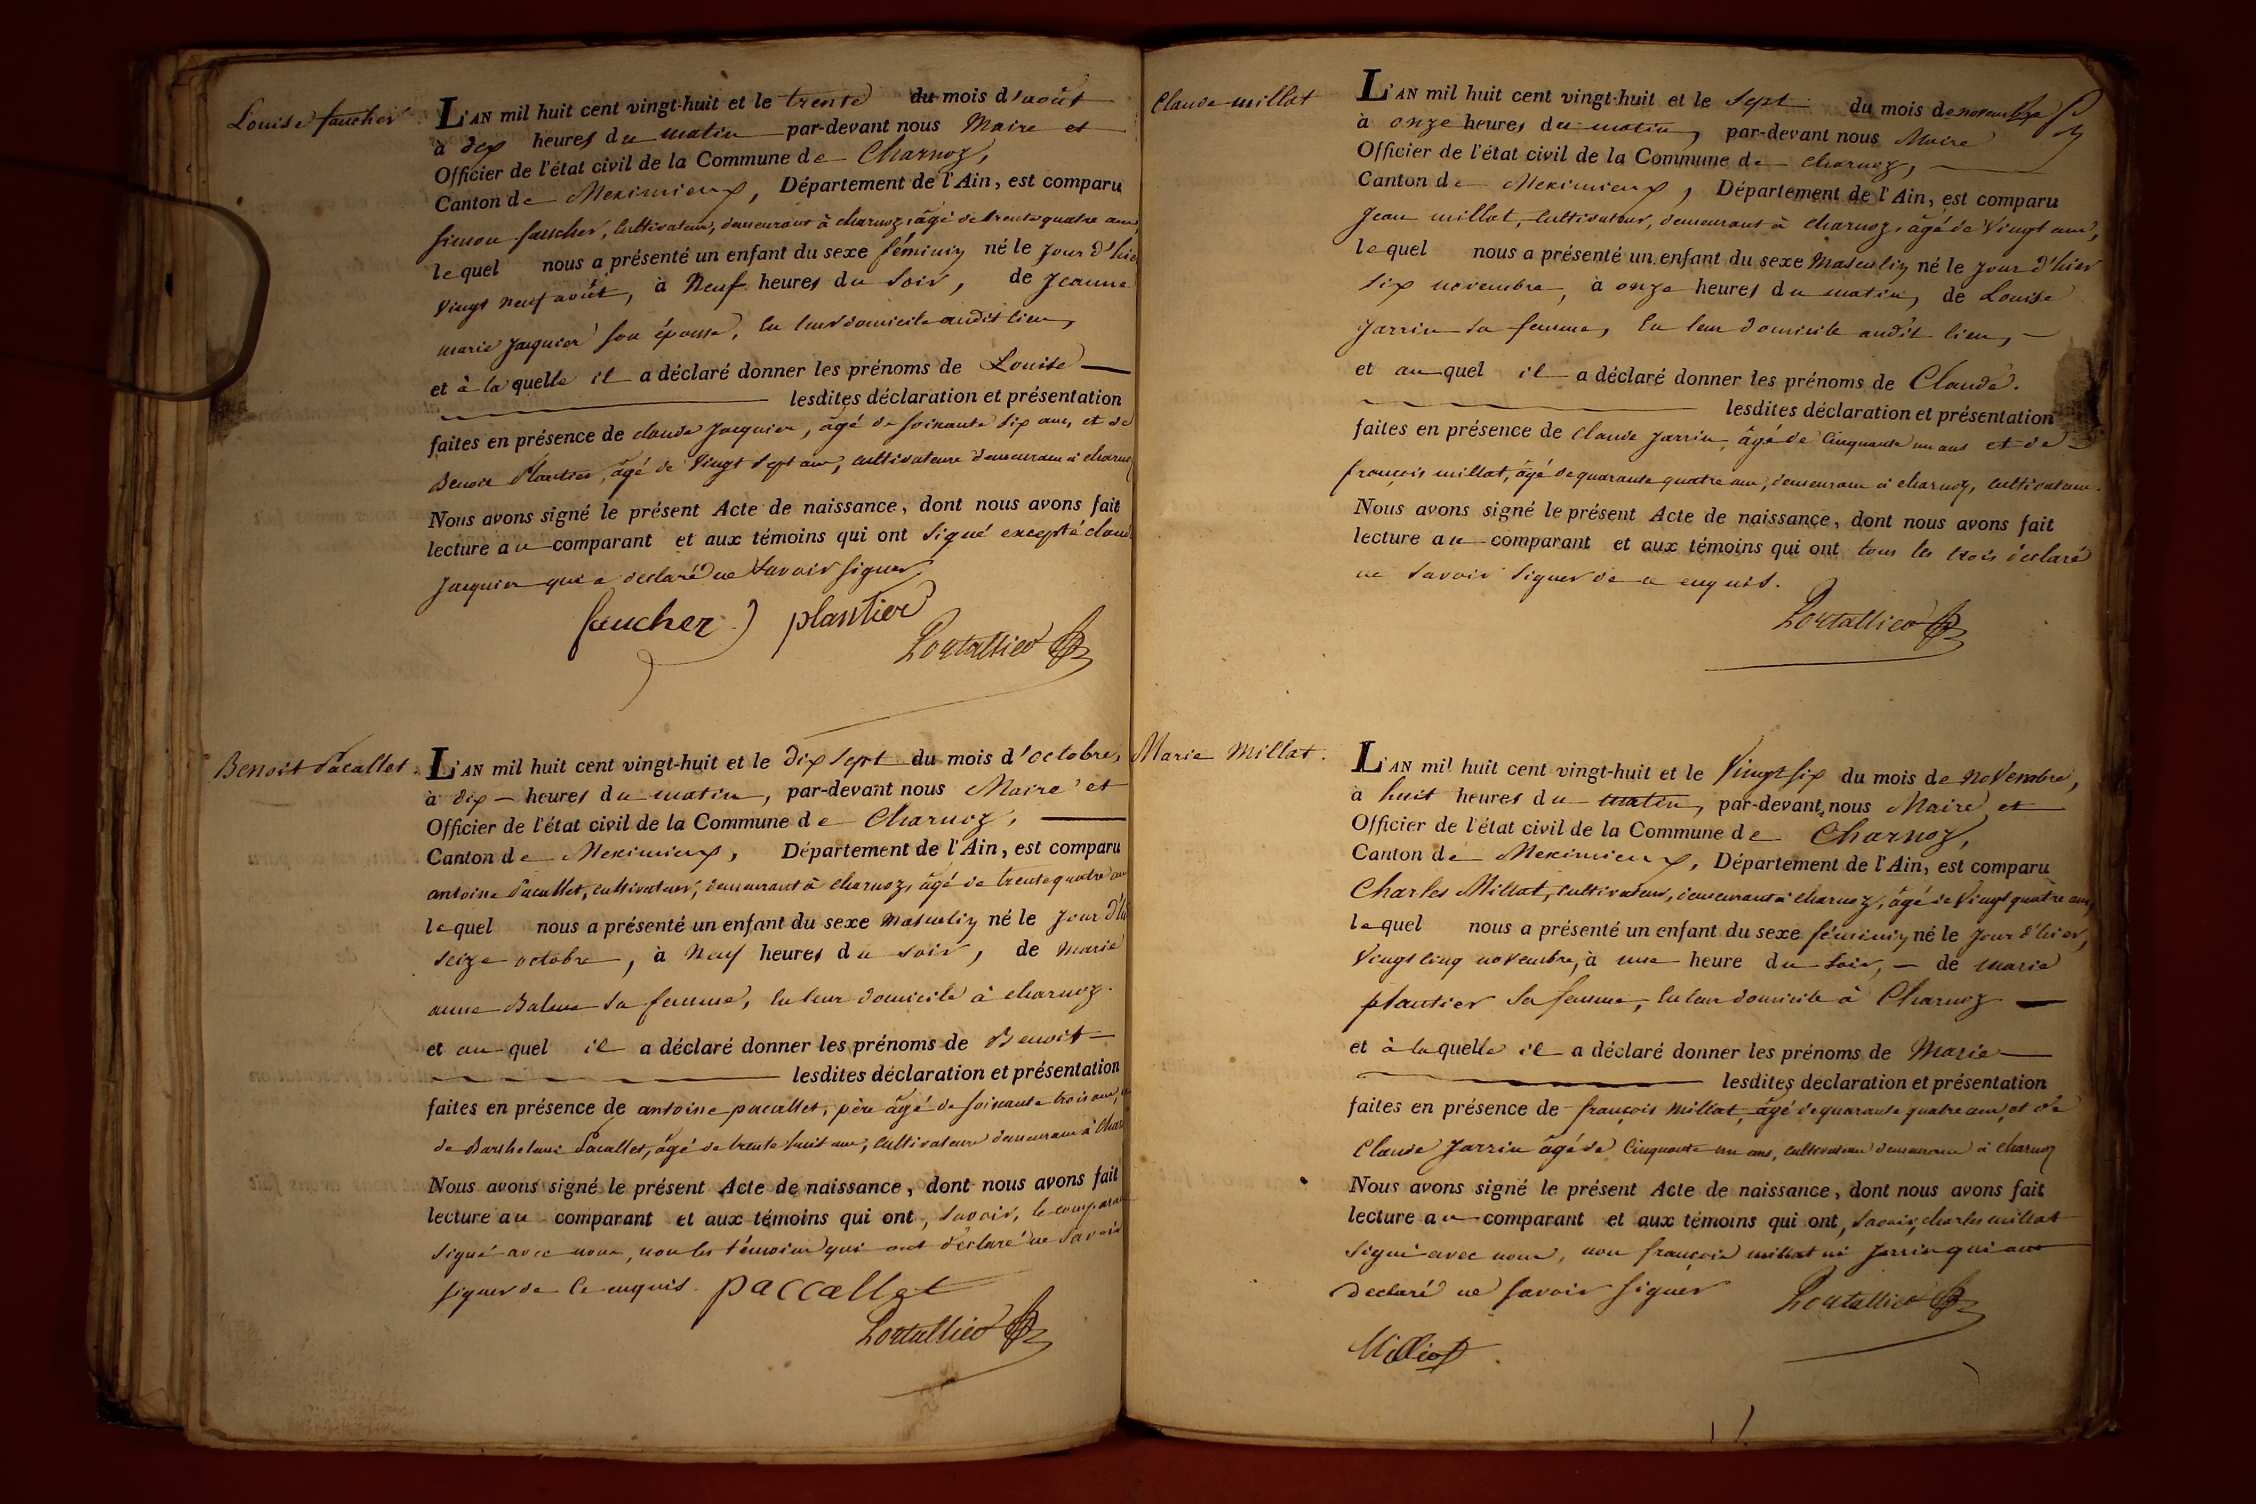 Louise faucher
L'AN mil huit cent vingt-huit et le trente du mois d'août
à dix heures du matin par-devant nous Maire et
Officier de l'état civil de la Commune de Charnoz,
Canton de Meximieux, Département de l'Ain, est comparu
simon faucher, cultivateur, demeurant à charnoz, âgé de trente quatre ans,
lequel nous a présenté un enfant du sexe féminin né le jour d'hier
vingt neuf août, à Neuf heures du soir, de Jeanne
marie Jacquier son épouse, en leur domicile audit lieu,
et à laquelle il a déclaré donner les prénoms de Louise
lesdites déclaration et présentation
faites en présence de claude Jacquier, âgé de soixante dix ans, et de
Benoit Plantier, âgé de vingt sept ans, cultivateurs demeurant à charnoz
Nous avons signé le présent Acte de naissance, dont nous avons fait
lecture au comparant et aux témoins qui ont signé excepté claude
Jacquier qui a déclaré ne savoir signer.
faucher plantier
Portallier
Benoit Pacallet.
L'AN mil huit cent vingt-huit et le dix sept du mois d'octobre,
à dix heures du matin, par-devant nous Maire et
Officier de l'état civil de la Commune de Charnoz,
Canton de Meximieux, Département de l'Ain, est comparu
antoine Pacallet, cultivateur, demeurant à charnoz, âgé de trente quatre ans
lequel nous a présenté un enfant du sexe masculin né le jour d'hier
seize octobre, à neuf heures du soir, de marie
anne Balme sa femme, en leur domicile à charnoz.
et auquel il a déclaré donner les prénoms de Benoit
lesdites déclaration et présentation
faites en présence de antoine pacallet, père âgé de soixante trois ans, et
de Barthelemi Pacallet, âgé de trente huit ans, cultivateurs demeurant à Char
Nous avons signé le présent Acte de naissance, dont nous avons fait
lecture au comparant et aux témoins qui ont, savoir, le comparant
signé avec nous, non les témoins qui ont déclaré ne savoir
signer de ce enquis. paccallet
Portallier
Claude millat
L'AN mil huit cent vingt-huit et le sept du mois de novembre
à onze heures du matin, par-devant nous Maire
Officier de l'état civil de la Commune de charnoz,
Canton de Meximieux, Département de l'Ain, est comparu
Jean millat, cultivateur, demeurant à charnoz, âgé de vingt ans,
lequel nous a présenté un enfant du sexe Masculin né le jour d'hier
six novembre, à onze heures du matin, de Louise
Jarrin sa femme, en leur domicile audit lieu,
et auquel il a déclaré donner les prénoms de Claude.
lesdites déclaration et présentation
faites en présence de Claude Jarrin, âgé de Cinquante un ans et de
françois millat, âgé de quarante quatre ans, demeurant à charnoz, cultivateurs.
Nous avons signé le présent Acte de naissance, dont nous avons fait
lecture au comparant et aux témoins qui ont tous les trois déclaré
ne savoir signer de ce enquis.
Portallier
Marie Millat.
L'AN mil huit cent vingt-huit et le Vingt six du mois de Novembre,
à huit heures du matin, par-devant nous Maire et
Officier de l'état civil de la Commune de Charnoz,
Canton de Meximieux, Département de l'Ain, est comparu
Charles Millat, cultivateur, demeurant à charnoz, âgé de Vingt quatre ans,
lequel nous a présenté un enfant du sexe féminin né le jour d'hier,
Vingt cinq novembre, à une heure du soir, de marie
plantier sa femme, en leur domicile à Charnoz
et à laquelle il a déclaré donner les prénoms de Marie
lesdites déclaration et présentation
faites en présence de françois Millat, âgé de quarante quatre ans, et de
Claude Jarrin âgé de Cinquante un ans, cultivateurs demeurant à charnoz
Nous avons signé le présent Acte de naissance, dont nous avons fait
lecture au comparant et aux témoins qui ont, savoir, charles millat
signé avec nous, non françois millat ni Jarrin qui ont
déclaré ne savoir signer Portallier
Milliat